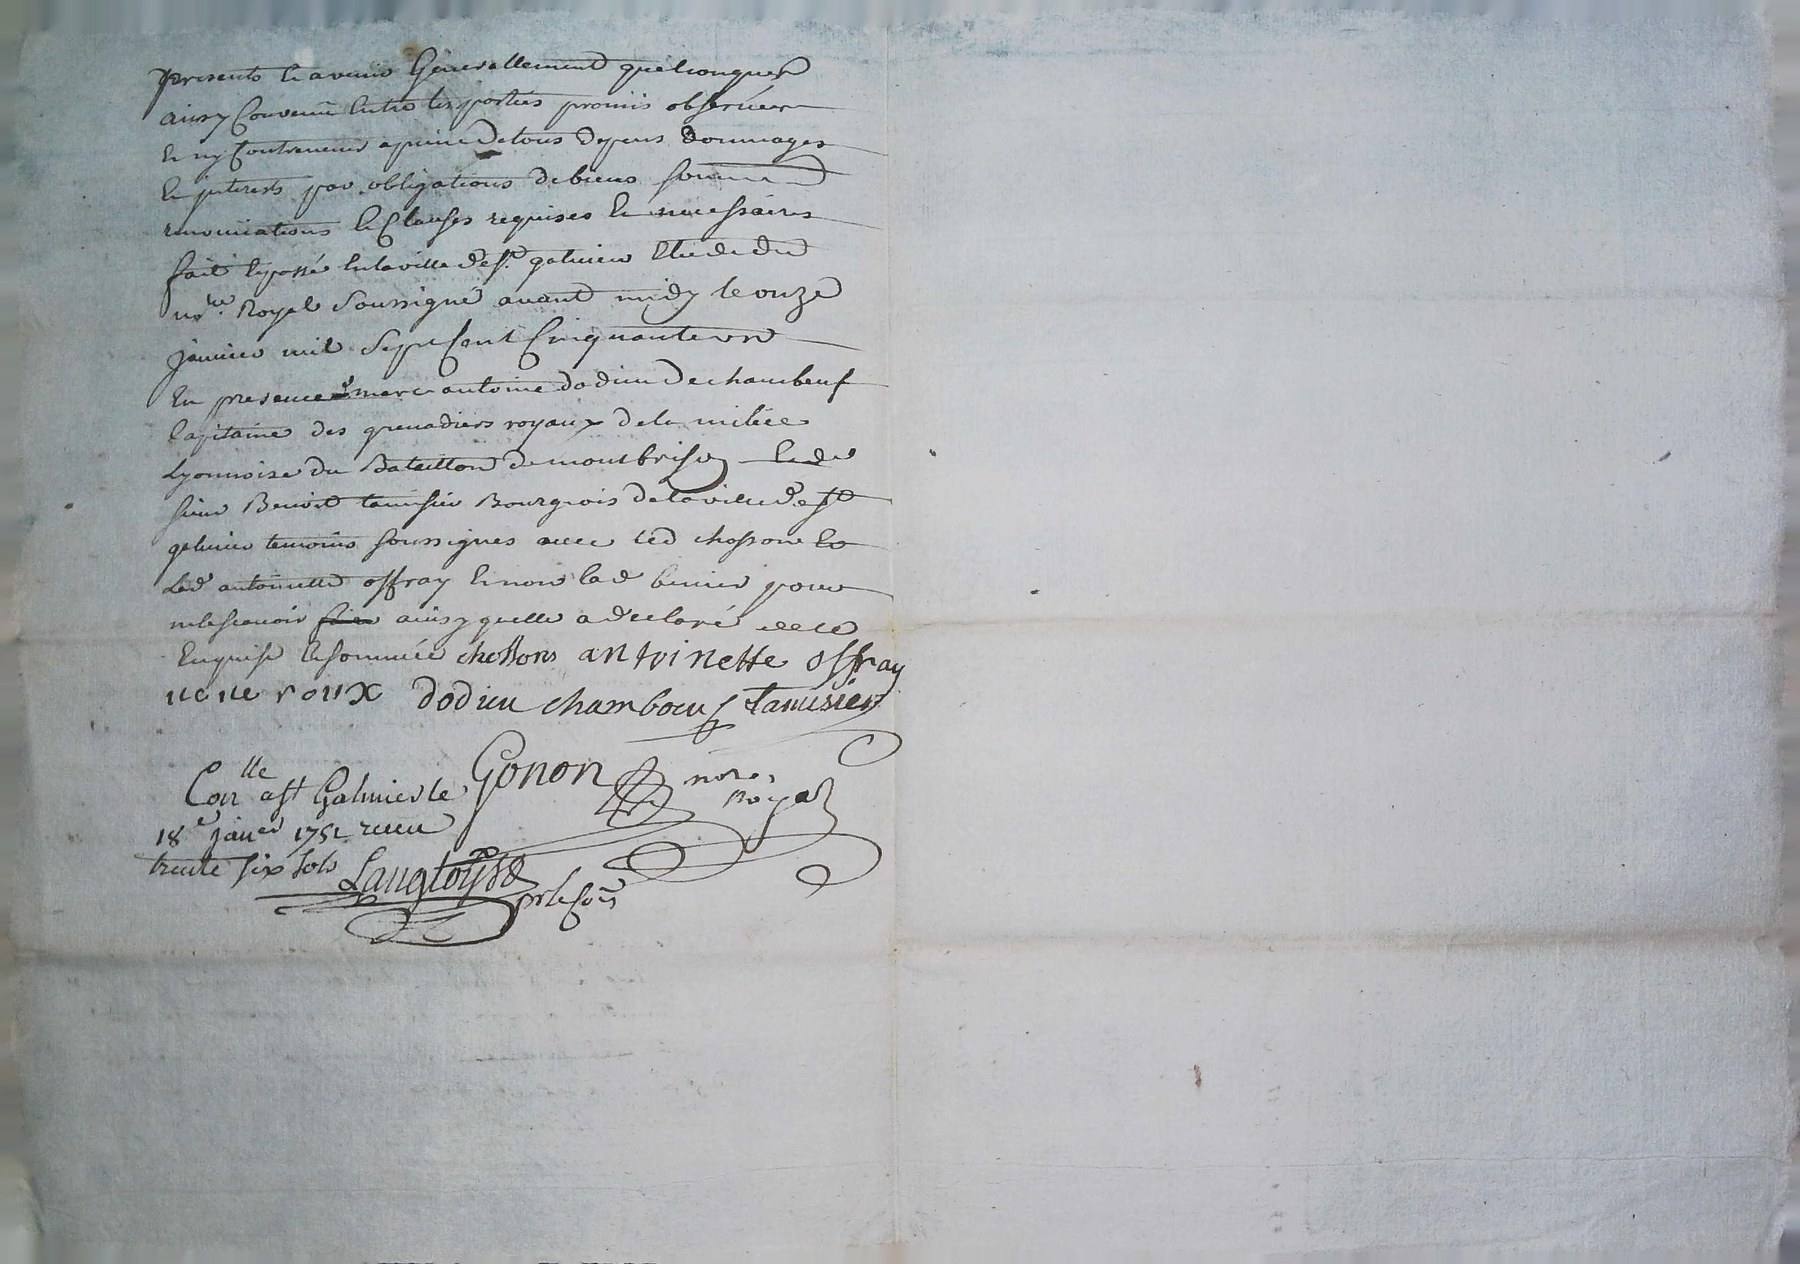 presents & avenir Generallement quelconques
ainsy Convenu Entre les parties promis observer
& ny Contrevenir a peine de tous depens dommages
& interests par obligations de biens soumi
renonciations & Clauses requises & necessaires
fait & passé En la ville de st galmier Etude du
nore Royal soussigné avant midy le onze
janvier mil sept Cent Cinquante un
En presence de marc antoine dodieu de chambeuf
Capitaine des grenadiers royaux de la milice
Lyonnoise du Bataillon de montbrison & de
sieur Benoit tamisier Bourgeois de la ville de st
galmier temoins soussignes avec led chossons &
lad antoinette offray & non lad benier pour
ne le scavoir faire ainsy quelle a declaré de ce
Enquise & sommée chossons antoinette offray
ne ne roux dodieu chamboeuf tamisier
Conlle a st Galmier le Gonon nore
Royal
18e janer 1751 receu
trente six sols Langloysse
pr le Conr